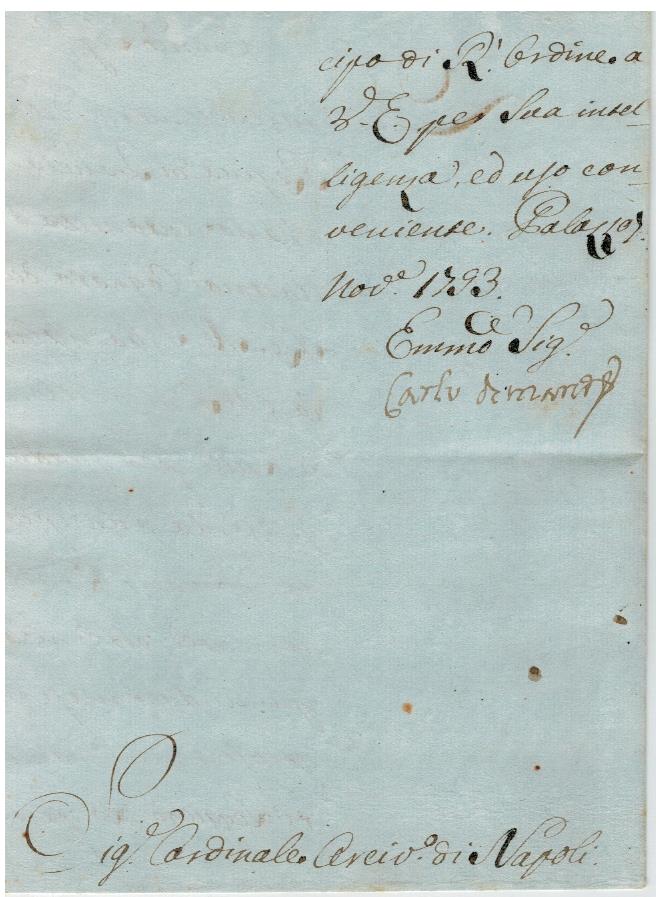 cipo di R.l Ordine a
V.E. per Sua intel-
ligenza, ed uso con-
veniente. Palazzo
Nov.e 1793.
Emmo Sig.e
Carlo Demarco
Sig.r Cardinale Arciv.o di Napoli.